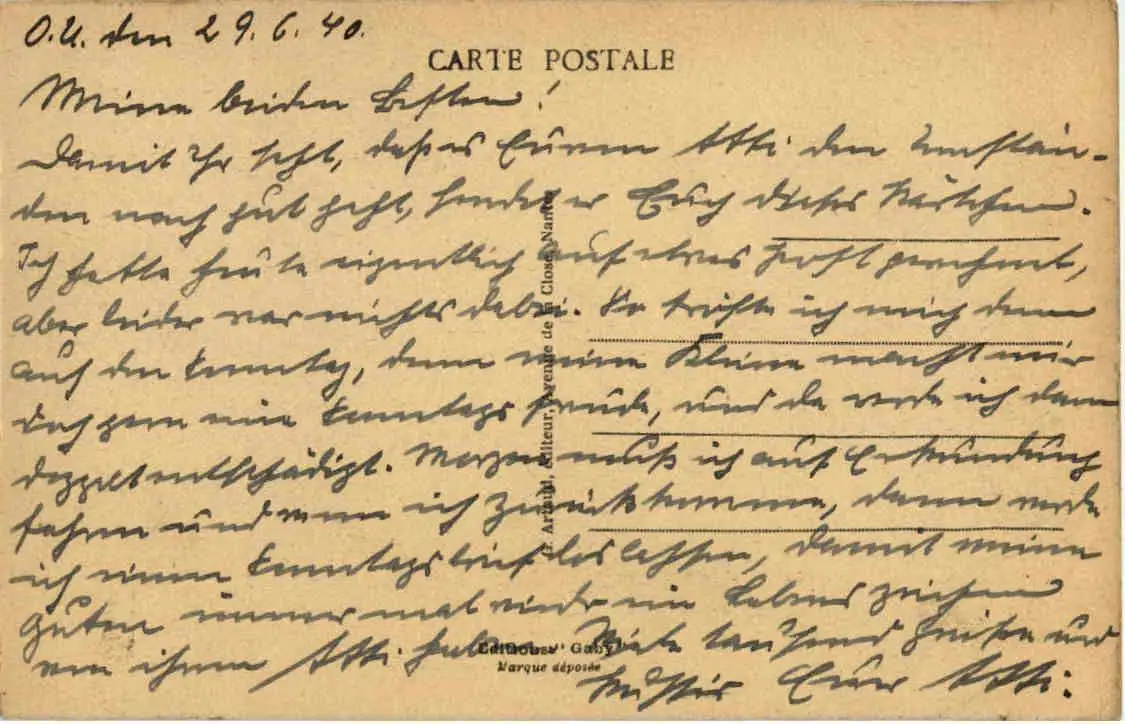 O.U. den 29.6.40.
CARTE POSTALE
Meine beiden Besten!
Damit Ihr seht, daß es Eurem Atti den Umstän-
den nach gut geht, sendet er Euch dieses Kärtchen.
Ich hatte heute eigentlich auf etwas Post gerechnet,
aber leider war nichts dabei. So tröste ich mich denn
auf den Sonntag, denn meine Kleine macht mir
doch gern eine Sonntagsfreude, und da werde ich dann
doppelt entschädigt. Morgen muß ich auf Erkundung
fahren und wenn ich zurückkomme, dann werde
ich einen Sonntagsbrief loslassen, damit meine
Guten immer mal wieder ein Lebenszeichen
von ihrem Atti haben. Viele tausend Grüße und
Bussis Euer Atti.
Artaud, éditeur, Avenue de la Close, Nantes
Editions "Gaby"
Marque déposée